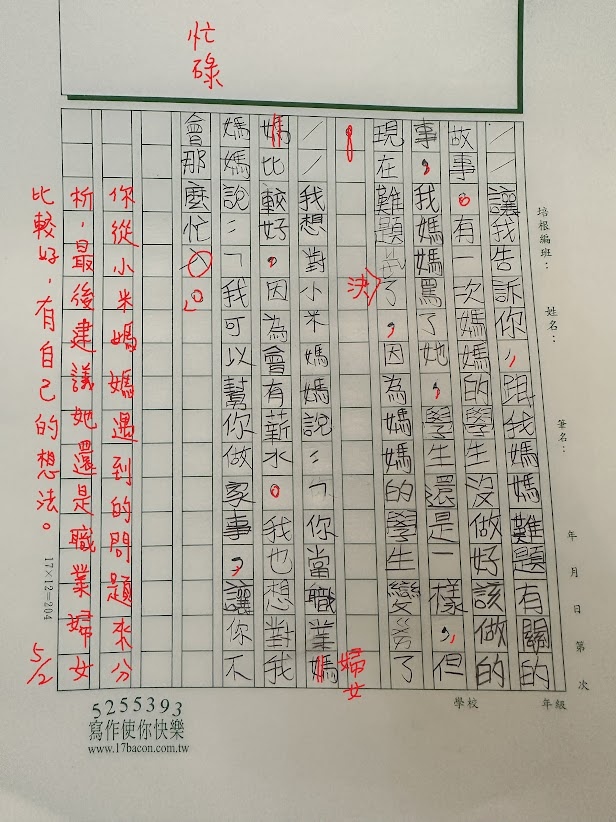 忙碌
培根編班：
姓名：
筆名：
年 月 日 第 次
學校 年級
／／讓我告訴你，跟我媽媽難題有關的
故事。有一次媽媽的學生沒做好該做的
事，我媽媽罵了她，學生還是一樣，但
現在難題決了，因為媽媽的學生變了
／／我想對小米媽媽說：「你當職業媽
婦女
媽比較好，因為會有薪水。我也想對我
媽媽說：「我可以幫你做家事，讓你不
會那麼忙。
你從小米媽媽遇到的問題來分
析，最後建議她還是職業婦女
比較好，有自己的想法。
5/2
17×12=204
5255393
寫作使你快樂
www.17bacon.com.tw